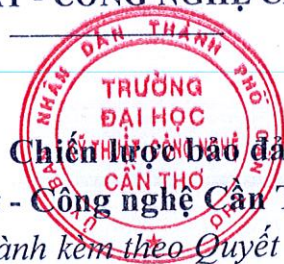 - CÔNG NGHỆ C
ỦY BAN NHÂN DÂN THÀNH PHỐ CẦN THƠ
TRƯỜNG
ĐẠI HỌC
KỸ THUẬT CÔNG NGHỆ
CẦN THƠ
Chiến lược bảo đả
- Công nghệ Cần T
ành kèm theo Quyết